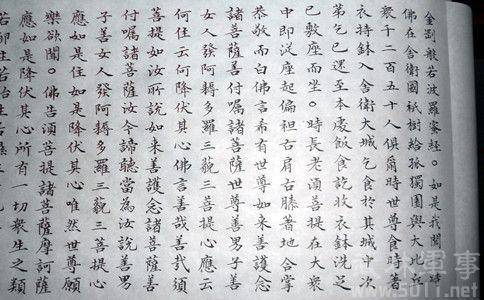 金剛般若波羅蜜經。如是我聞一時
佛在舍衛國祇樹給孤獨園與大比丘
眾千二百五十人俱爾時世尊食時著
衣持鉢入舍衛大城乞食於其城中次
第乞已還至本處飯食訖收衣鉢洗足
已敷座而坐。時長老湏菩提在大衆
中即從座起偏袒右肩右膝著地合掌
恭敬而白佛言希有世尊如來善護念
諸菩薩善付囑諸菩薩世尊善男子善
女人發阿耨多羅三藐三菩提心應云
何住云何降伏其心佛言善哉善哉湏
菩提如汝所說如來善護念諸菩薩善
付囑諸菩薩汝今諦聽當為汝說善男
子善女人發阿耨多羅三藐三菩提心
應如是住如是降伏其心唯然世尊願
樂欲聞。佛告湏菩提諸菩薩摩訶薩
應如是降伏其心所有一切眾生之類
若卵生若胎生若
军事
5011.net